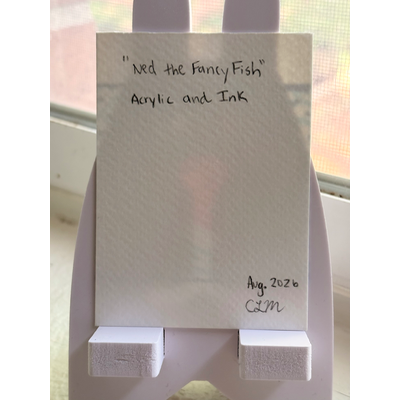 "Ned the Fancy Fish"
Acrylic and Ink
Aug. 2026
CLM